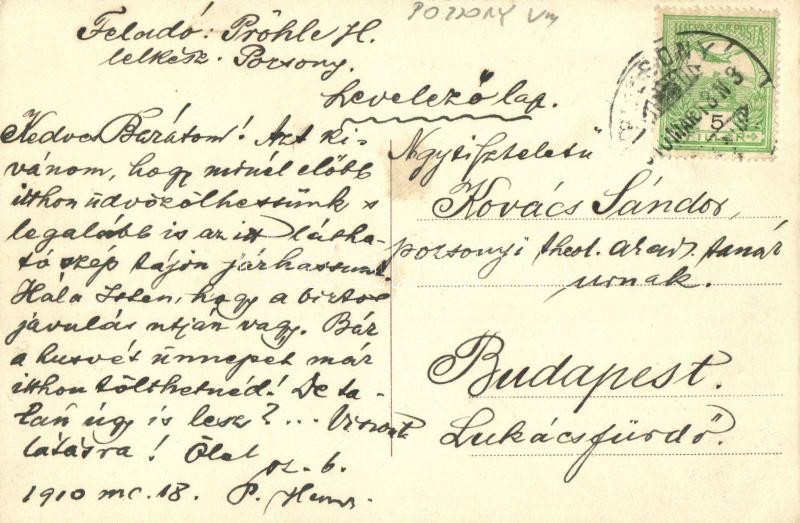 POZSONY
Feladó: Pröhle H.
lelkész. Pozsony.
Levelező lap.
Kedves Barátom! Azt ki-
vánom, hogy minél előbb
itthon üdvözölhessünk s
legalább is az itt látha-
tó szép tájon járhassunk.
Hála Isten, hogy a biztos
javulás utján vagy. Bár
a husvét ünnepet már
itthon tölthetnéd! De ta-
lán úgy is lesz?... Viszont-
látásra! Ölel
sz. b.
1910 mc. 18. P. Henr.
Ngytiszteletü
Kovács Sándor,
pozsonyi theol. akad. tanár
urnak.
Budapest.
Lukácsfürdő.
MAGYAR KIR. POSTA
5
FILLÉR